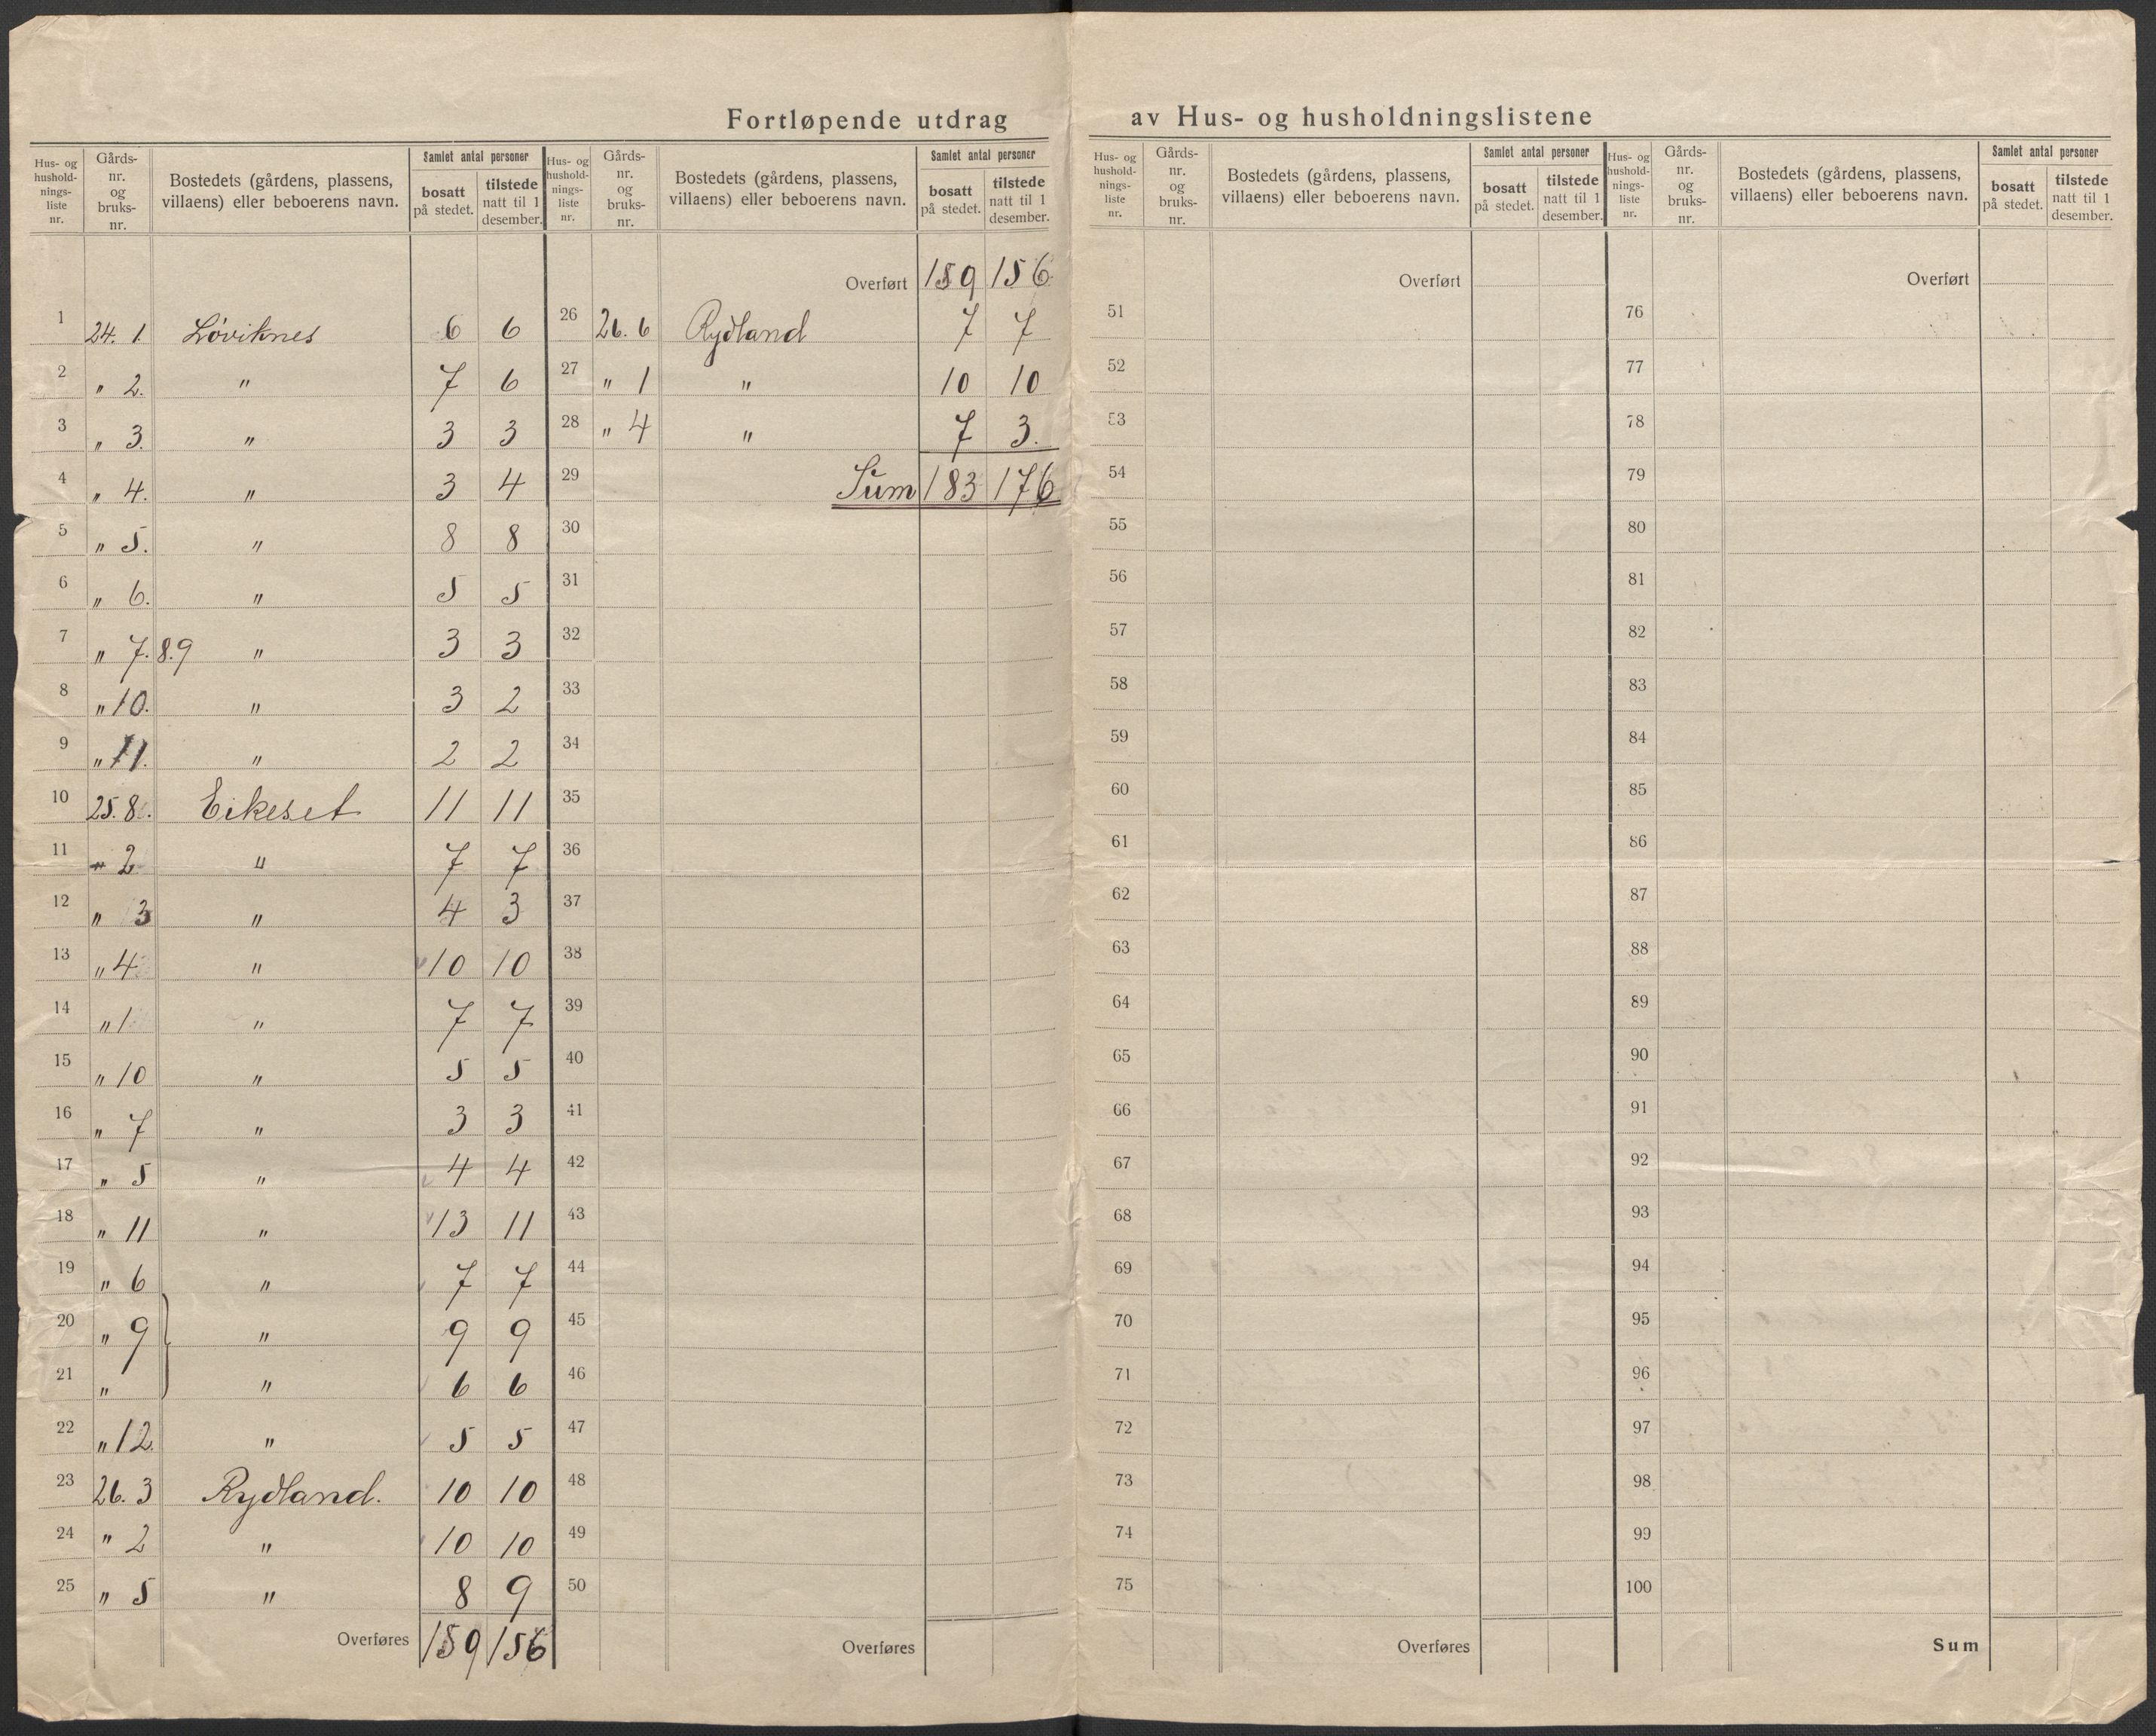 Fortløpende utdrag av Hus- og husholdningslistene
Hus- og hushold-nings-liste nr. Gårds-nr. og bruks-nr. Bostedets (gårdens, plassens, villaens) eller beboerens navn. Samlet antal personer bosatt på stedet. tilstede natt til 1 desember.
1 24. 1. Løviknes 6 6
2 " 2. " 7 6
3 " 3. " 3 3
4 " 4. " 3 4
5 " 5. " 8 8
6 " 6. " 5 5
7 " 7. 8. 9 " 3 3
8 " 10. " 3 2
9 " 11. " 2 2
10 25. 8. Eikeset 11 11
11 " 2 " 7 7
12 " 3 " 4 3
13 " 4 " 10 10
14 " 1 " 7 7
15 " 10 " 5 5
16 " 7 " 3 3
17 " 5 " 4 4
18 " 11 " 13 11
19 " 6 " 7 7
20 " 9 " 9 9
21 " " 6 6
22 " 12. " 5 5
23 26. 3 Rydland. 10 10
24 " 2 " 10 10
25 " 5 " 8 9
Overføres 159 156
Hus- og hushold-nings-liste nr. Gårds-nr. og bruks-nr. Bostedets (gårdens, plassens, villaens) eller beboerens navn. Samlet antal personer bosatt på stedet. tilstede natt til 1 desember.
Overført 159 156
26 26. 6 Rydland 7 7
27 " 1 " 10 10
28 " 4 " 7 3.
29 Sum 183 176
30
31
32
33
34
35
36
37
38
39
40
41
42
43
44
45
46
47
48
49
50
Overføres
Hus- og hushold-nings-liste nr. Gårds-nr. og bruks-nr. Bostedets (gårdens, plassens, villaens) eller beboerens navn. Samlet antal personer bosatt på stedet. tilstede natt til 1 desember.
Overført
51
52
53
54
55
56
57
58
59
60
61
62
63
64
65
66
67
68
69
70
71
72
73
74
75
Overføres
Hus- og hushold-nings-liste nr. Gårds-nr. og bruks-nr. Bostedets (gårdens, plassens, villaens) eller beboerens navn. Samlet antal personer bosatt på stedet. tilstede natt til 1 desember.
Overført
76
77
78
79
80
81
82
83
84
85
86
87
88
89
90
91
92
93
94
95
96
97
98
99
100
Sum